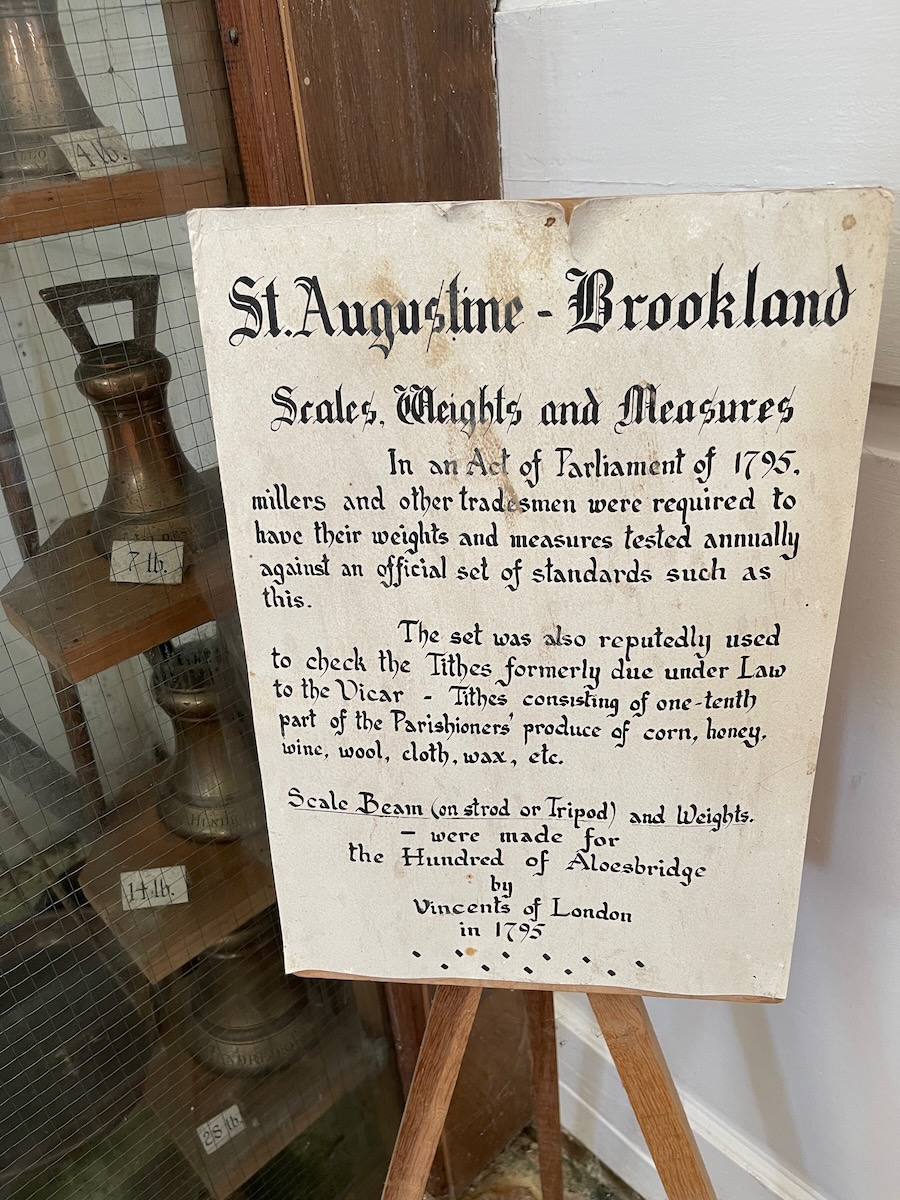 St. Augustine - Brookland
Scales, Weights and Measures
In an Act of Parliament of 1795,
millers and other tradesmen were required to
have their weights and measures tested annually
against an official set of standards such as
this.
The set was also reputedly used
to check the Tithes formerly due under Law
to the Vicar - Tithes consisting of one-tenth
part of the Parishioners' produce of corn, honey,
wine, wool, cloth, wax, etc.
Scale Beam (on strod or Tripod) and Weights.
- were made for
the Hundred of Aloesbridge
by
Vincents of London
in 1795
4 lb.
7 lb.
14 lb.
28 lb.